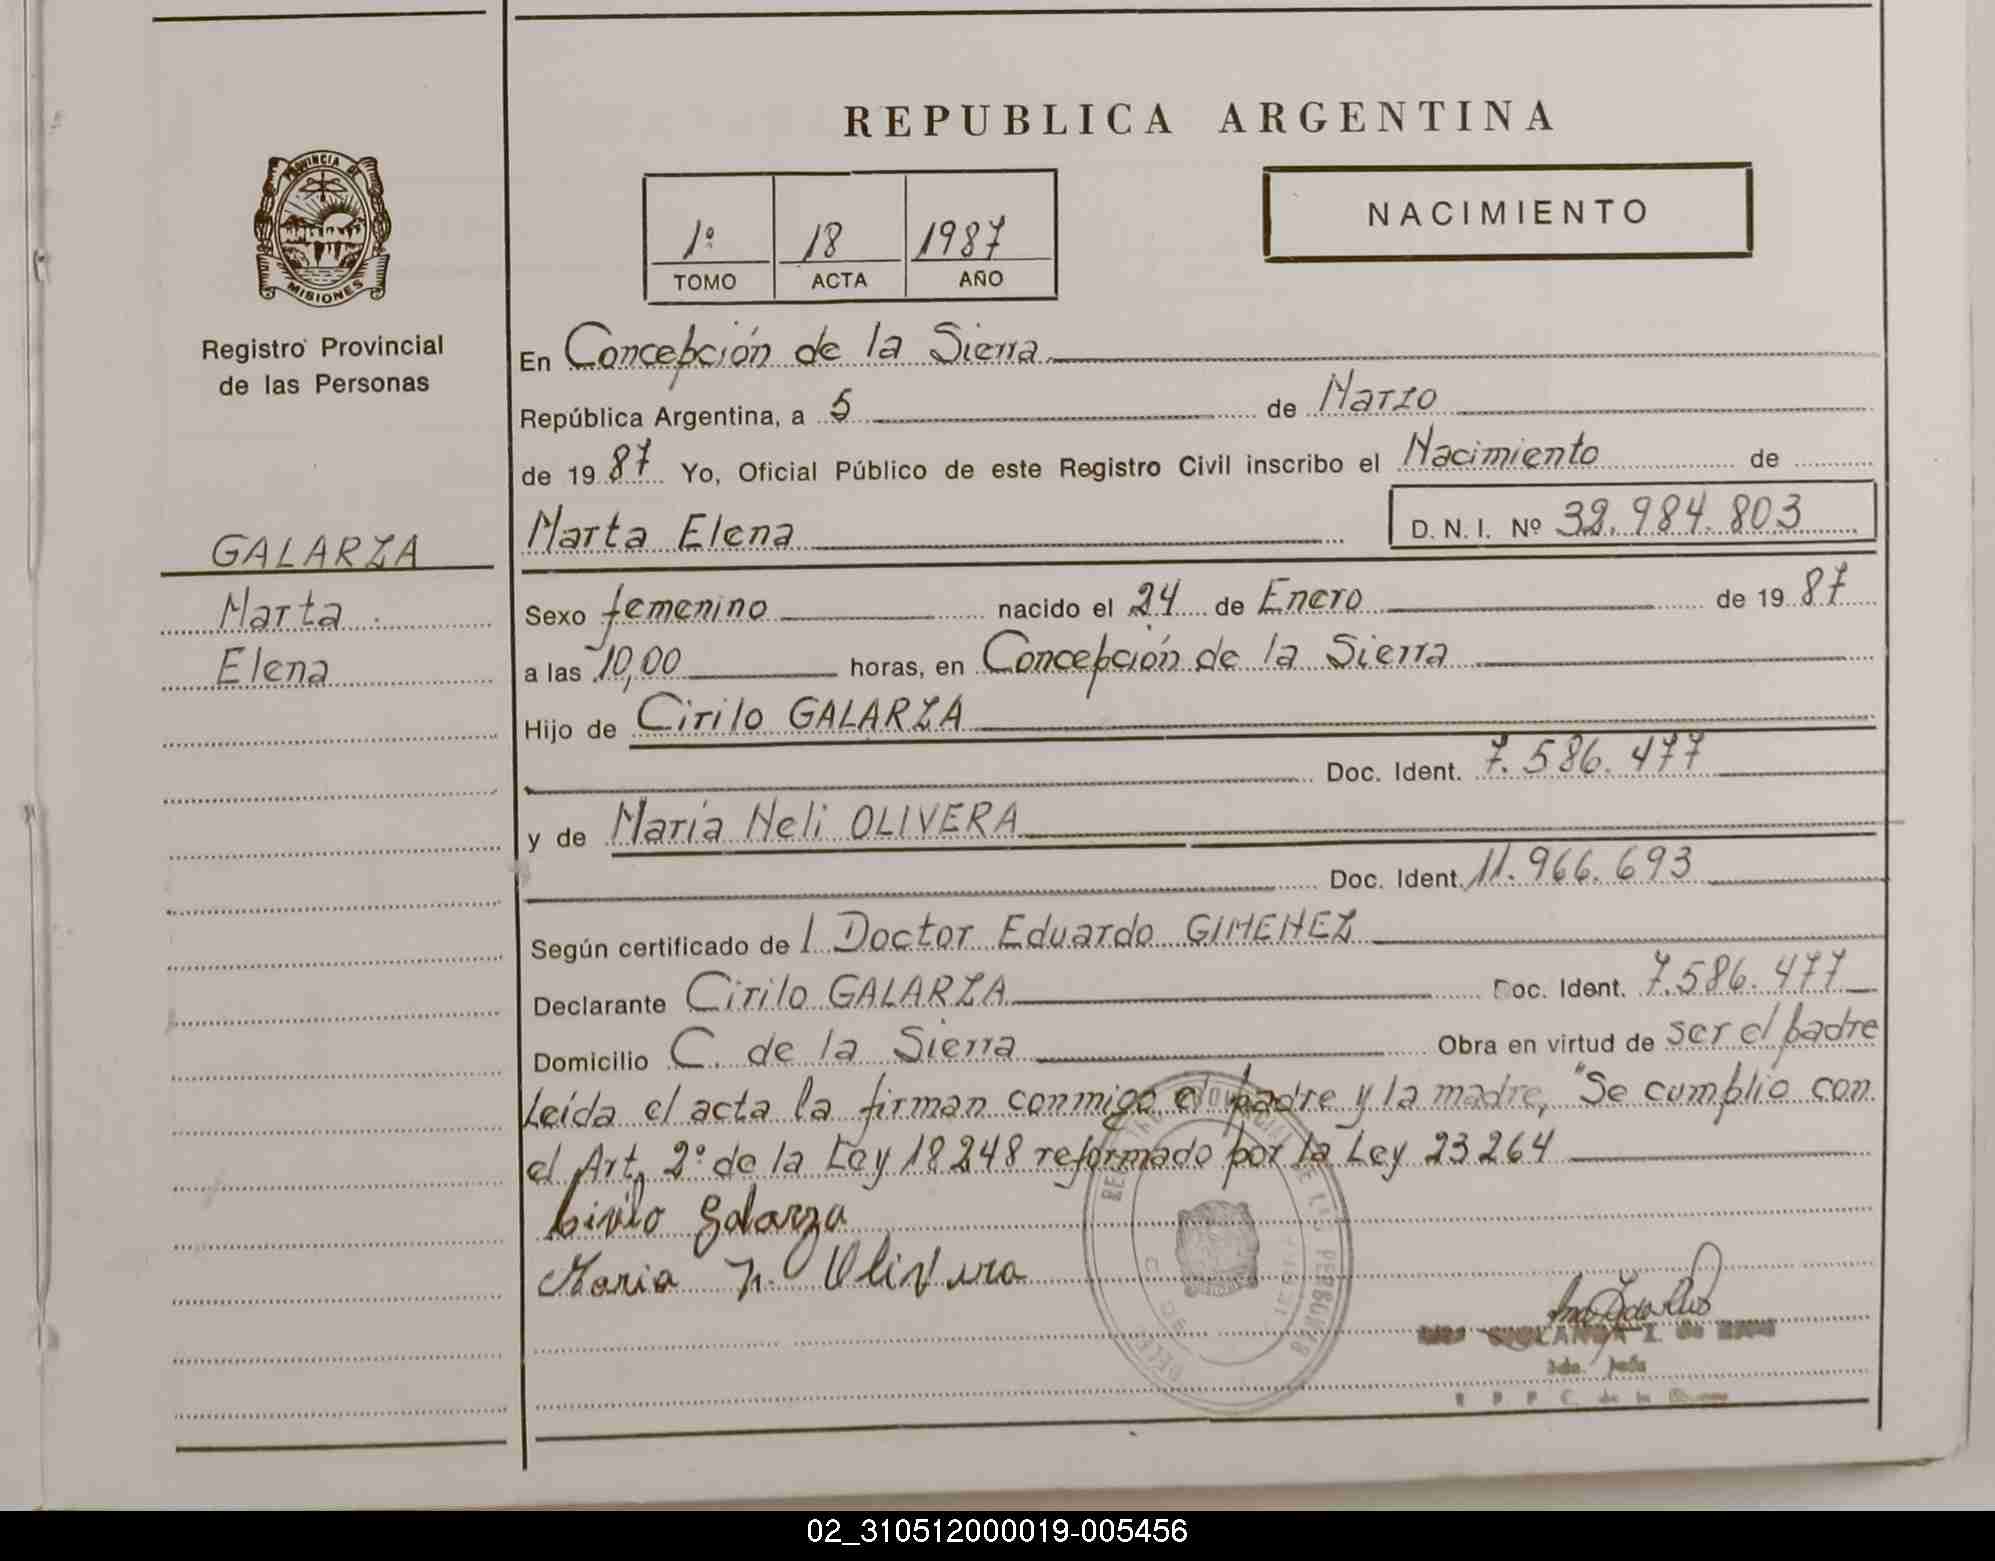 REPUBLICA ARGENTINA
PROVINCIA DE
MISIONES
Registro Provincial
de las Personas
GALARZA
Marta
Elena
1º 18 1987
TOMO ACTA AÑO
NACIMIENTO
En Concepción de la Sierra
República Argentina, a 5 de Marzo
de 19 87 Yo, Oficial Público de este Registro Civil inscribo el Nacimiento de
Marta Elena D. N. I. Nº 32.984.803
Sexo femenino nacido el 24 de Enero de 19 87
a las 10,00 horas, en Concepción de la Sierra
Hijo de Cirilo GALARZA
Doc. Ident. 7.586.477
y de María Neli OLIVERA
Doc. Ident. 11.966.693
Según certificado de l Doctor Eduardo GIMENEZ
Declarante Cirilo GALARZA Doc. Ident. 7.586.477
Domicilio C. de la Sierra Obra en virtud de ser el padre
Leída el acta la firman conmigo el padre y la madre, "Se cumplio con
el Art. 2º de la Ley 18248 reformado por la Ley 23264
Cirilo Galarza
Maria N. Olivera
02_310512000019-005456